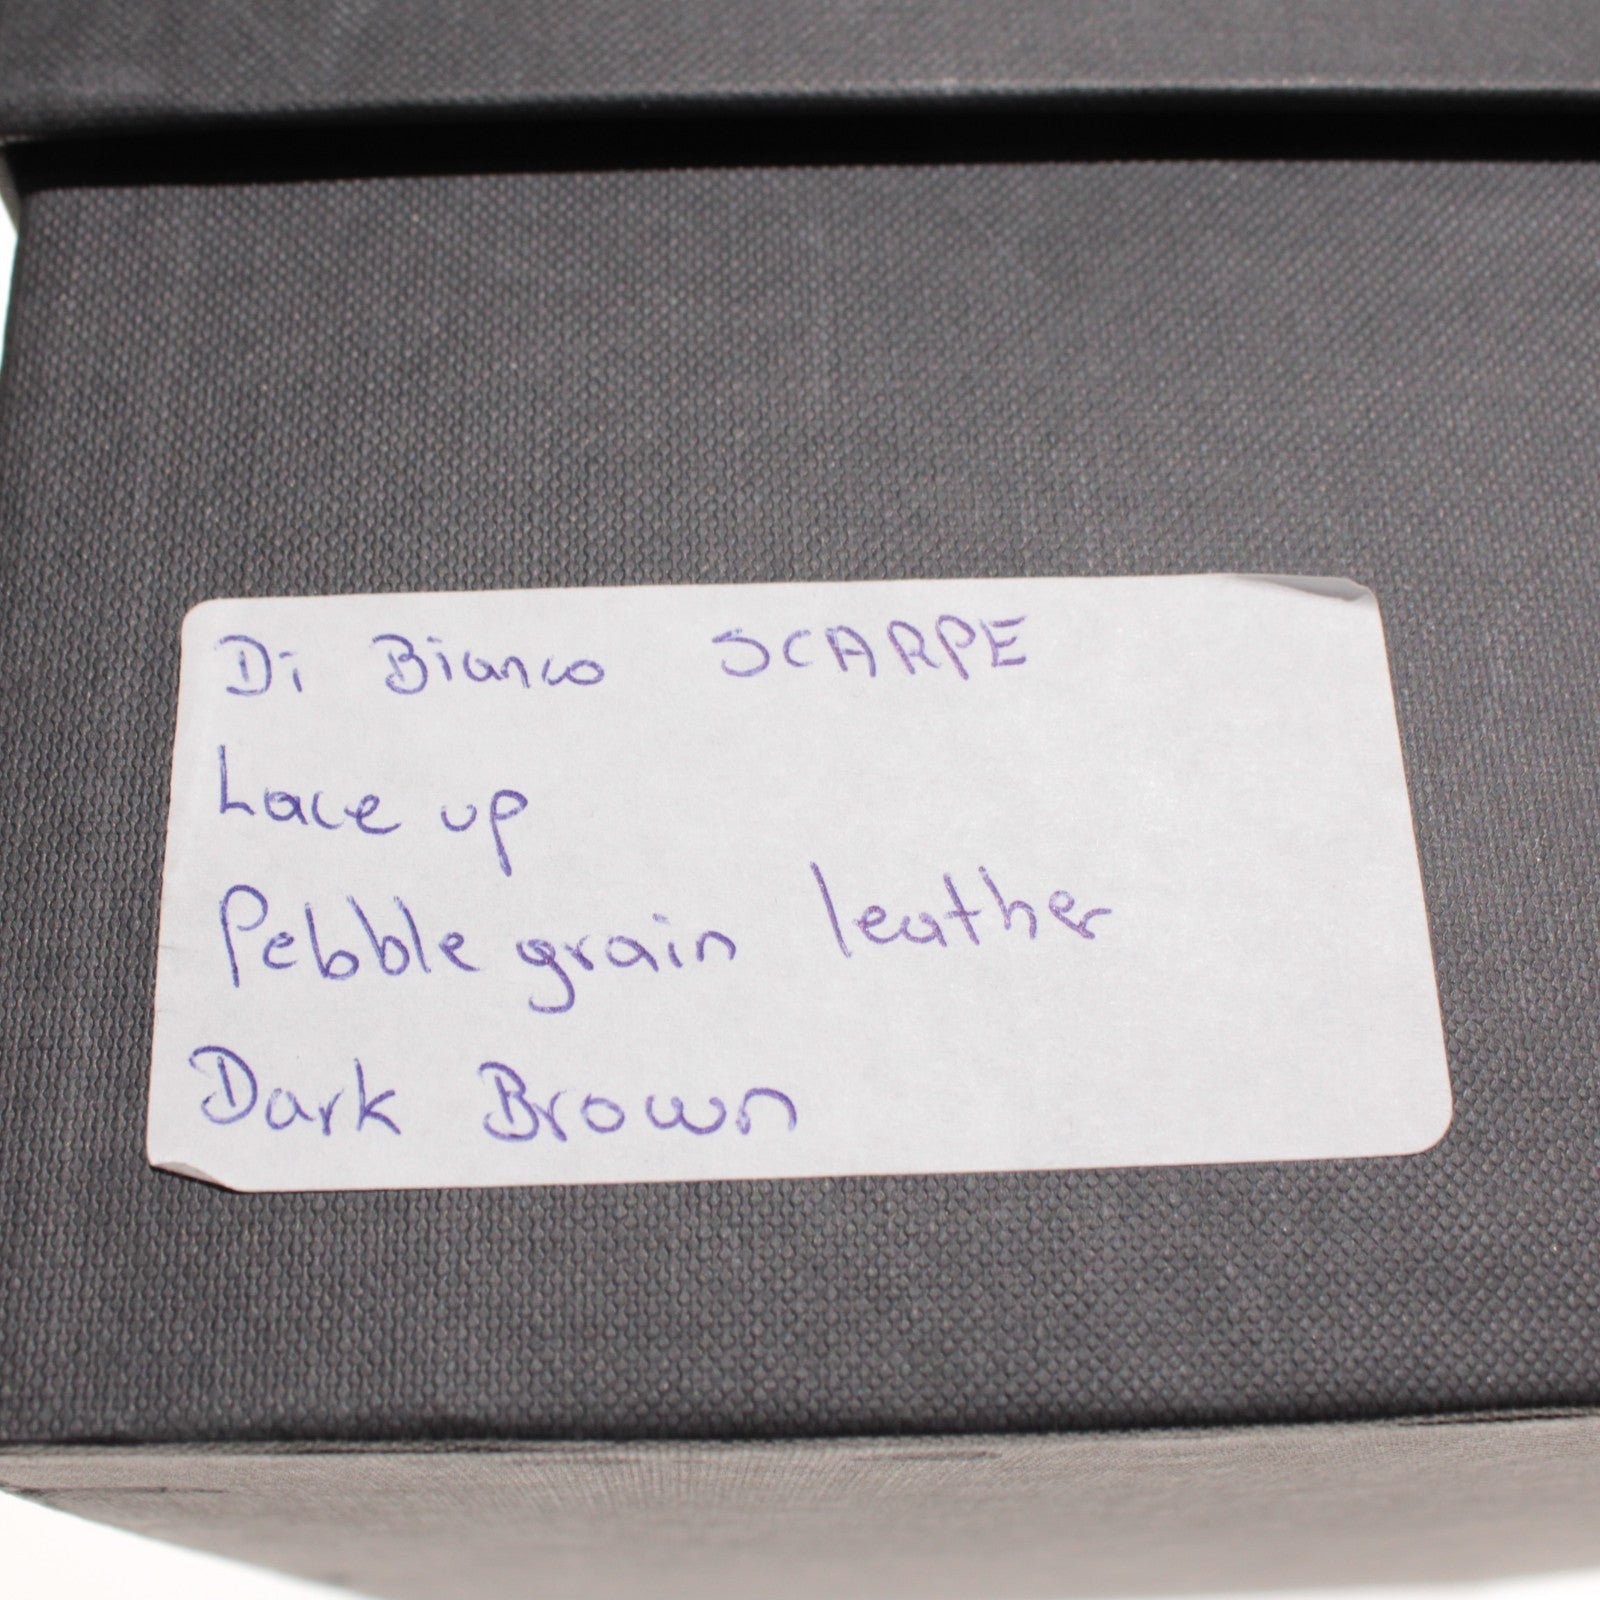 Di Bianco SCARPE
Lace up
Pebble grain leather
Dark Brown